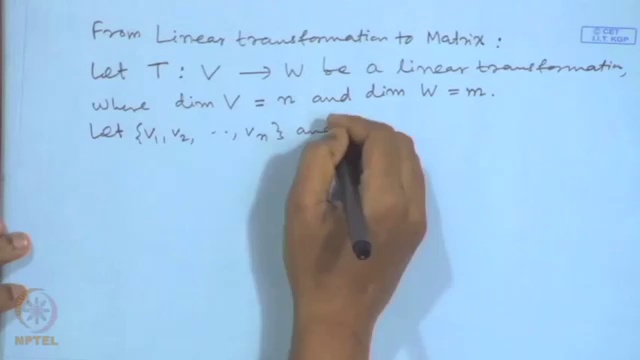 From Linear transformation to Matrix:
© CET
I.I.T. KGP
Let T: V → W be a linear transformation,
where dim V = n and dim W = m.
Let {v₁, v₂, .., vₙ} an
NPTEL